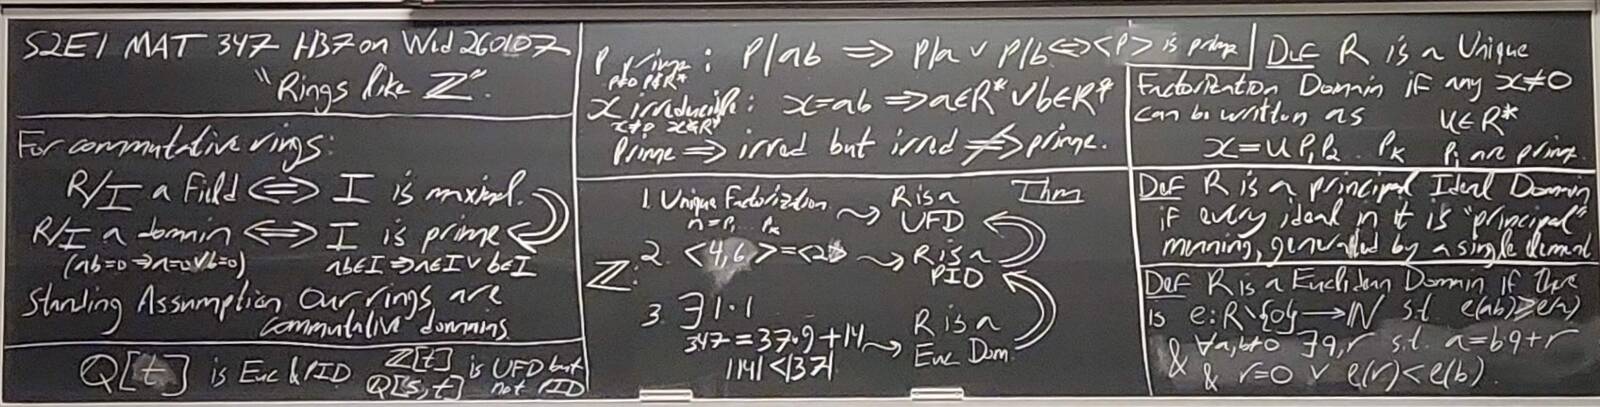 S2E1 MAT 347 H37 on Wed 260107
"Rings like ℤ".
For commutative rings:
R/I a Field ⟺ I is maximal.
R/I a domain ⟺ I is prime
(ab=0 ⇒ a=0 ∨ b=0) ab∈I ⇒ a∈I ∨ b∈I
Standing Assumption Our rings are
commutative domains
Q[t] is Euc & PID ℤ[t] Q[s,t] is UFD but not PID
P prime: P|ab ⟹ P|a ∨ P|b ⟺ <P> is prime
P≠0 P∉R*
x irreducible: x=ab ⟹ a∈R* ∨ b∈R*
x≠0 x∉R*
Prime ⟹ irred but irred ⇏ prime.
Thm
1. Unique Factorization ⇝ R is a
n=P₁...Pₖ UFD
ℤ:
2. <4,6>=<2> ⇝ R is a
PID
3. ∃|·|
347=37·9+14 ⇝ R is a
|14|<|37| Euc Dom.
Def R is a Unique
Factorization Domain if any x≠0
can be written as u∈R*
x=uP₁P₂...Pₖ Pᵢ are prime.
Def R is a principal Ideal Domain
if every ideal in it is "principal"
meaning, generated by a single element
Def R is a Euclidean Domain if there
is e:R\{0}→ℕ s.t. e(ab)≥e(a)
& ∀a,b≠0 ∃q,r s.t. a=bq+r
& r=0 ∨ e(r)<e(b).